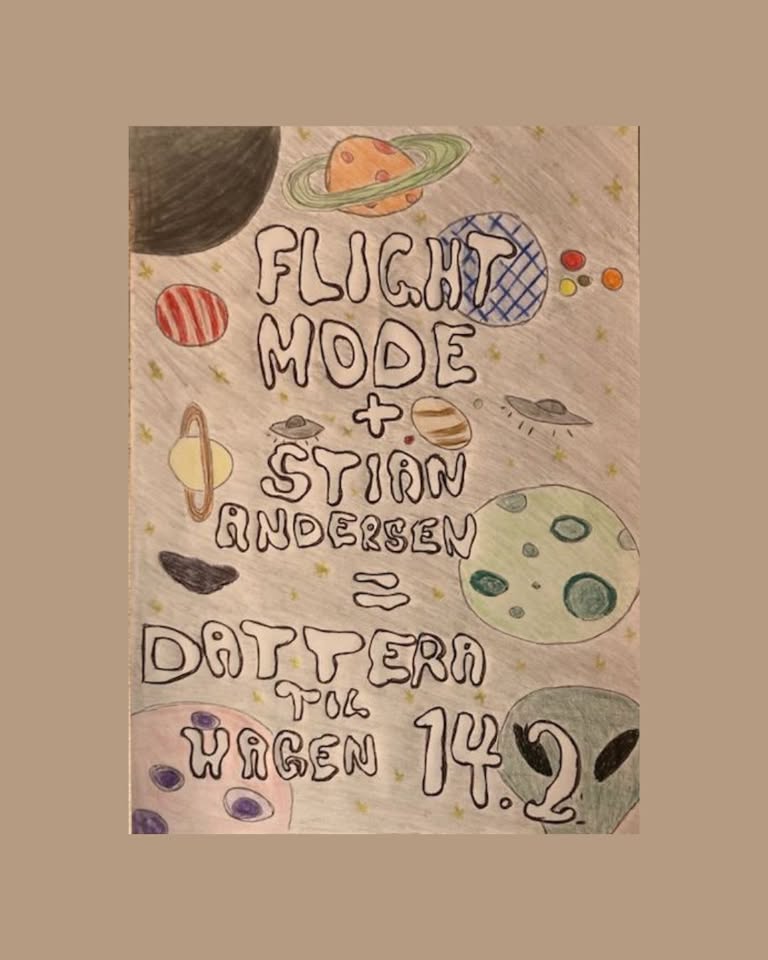 FLIGHT
MODE
+
STIAN
ANDERSEN
=
DATTERA
TIL
HAGEN 14.2.